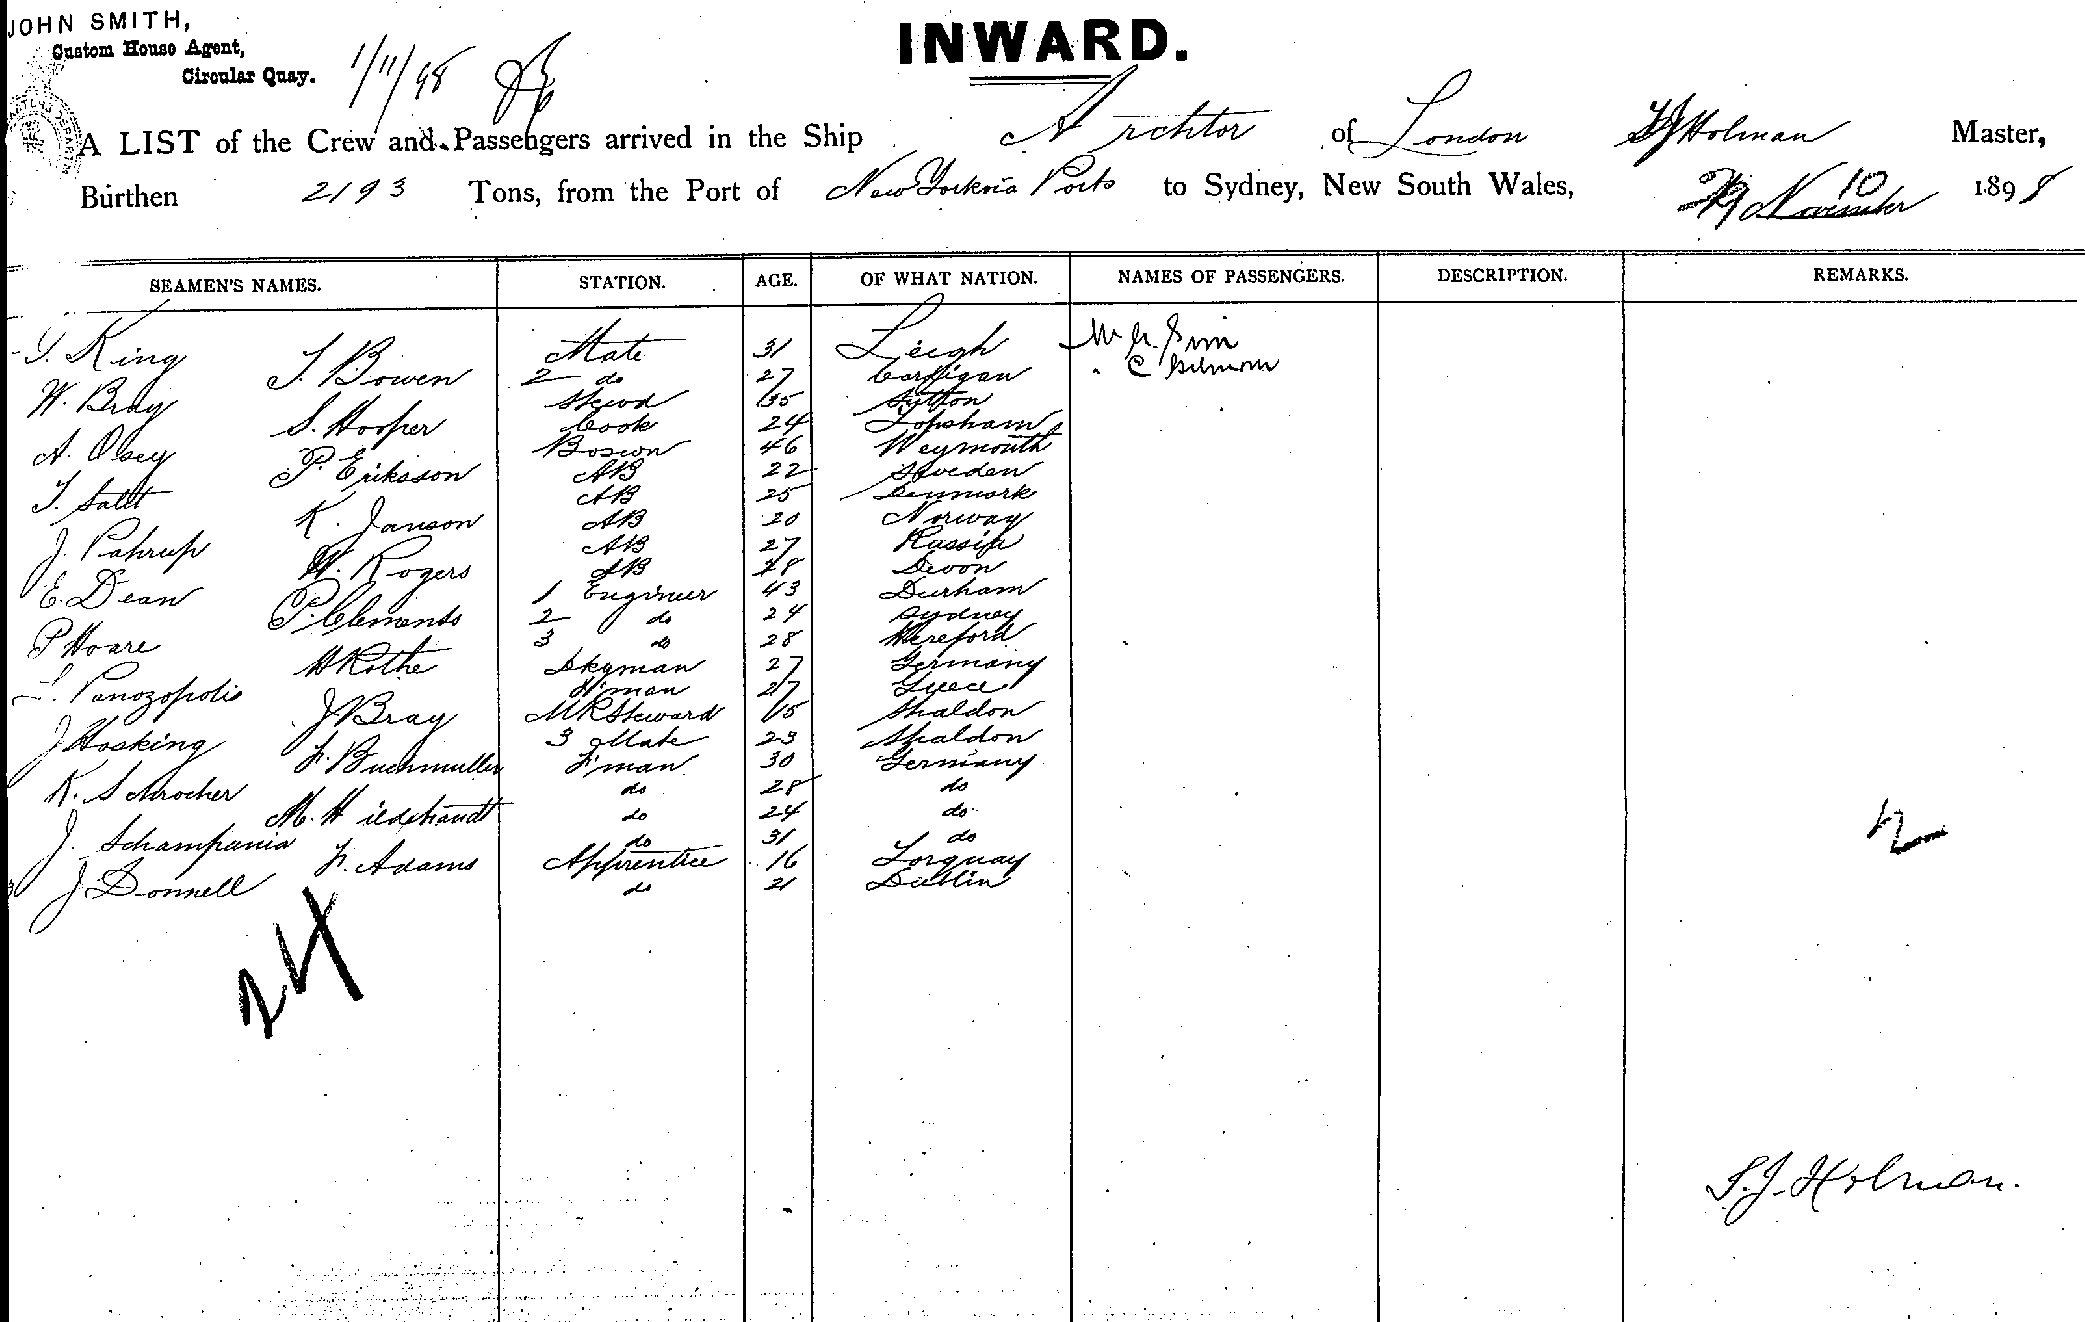 JOHN SMITH,
Custom House Agent,
Circular Quay.
1/11/98
INWARD.
A LIST of the Crew and Passengers arrived in the Ship Archtor of London SJ Holman Master,
Burthen 2193 Tons, from the Port of New York via Ports to Sydney, New South Wales, 10 November 1898
SEAMEN'S NAMES. STATION. AGE. OF WHAT NATION. NAMES OF PASSENGERS. DESCRIPTION. REMARKS.
King Mate 31 Leigh Sim
T. Bowen 2 do 27 Cardigan C
W. Bray Stewd 35 Sutton
S. Hooper Cook 24 Topsham
A. Olsey Bosun 46 Weymouth
P. Erikson AB 22 Sweden
T. Salt AB 25 Denmark
K. Janson AB 20 Norway
J. Pahrup AB 27 Russia
W. Rogers AB 28 Devon
E. Dean 1 Engineer 43 Durham
P. Clements 2 do 24 Sydney
P Hoare 3 do 28 Hereford
H Rothe Dkyman 27 Germany
Panozopolis F'man 27 Greece
J Bray MR Steward 15 Shaldon
J Hosking 3 Mate 23 Shaldon
F. Buchmuller F'man 30 Germany
K. Schrocher do 28 do
M. Hildebrandt do 24 do
J. Schampania do 31 do
F. Adams Apprentice 16 Torquay
J Donnell do 21 Dublin
2
24
S.J. Holman.